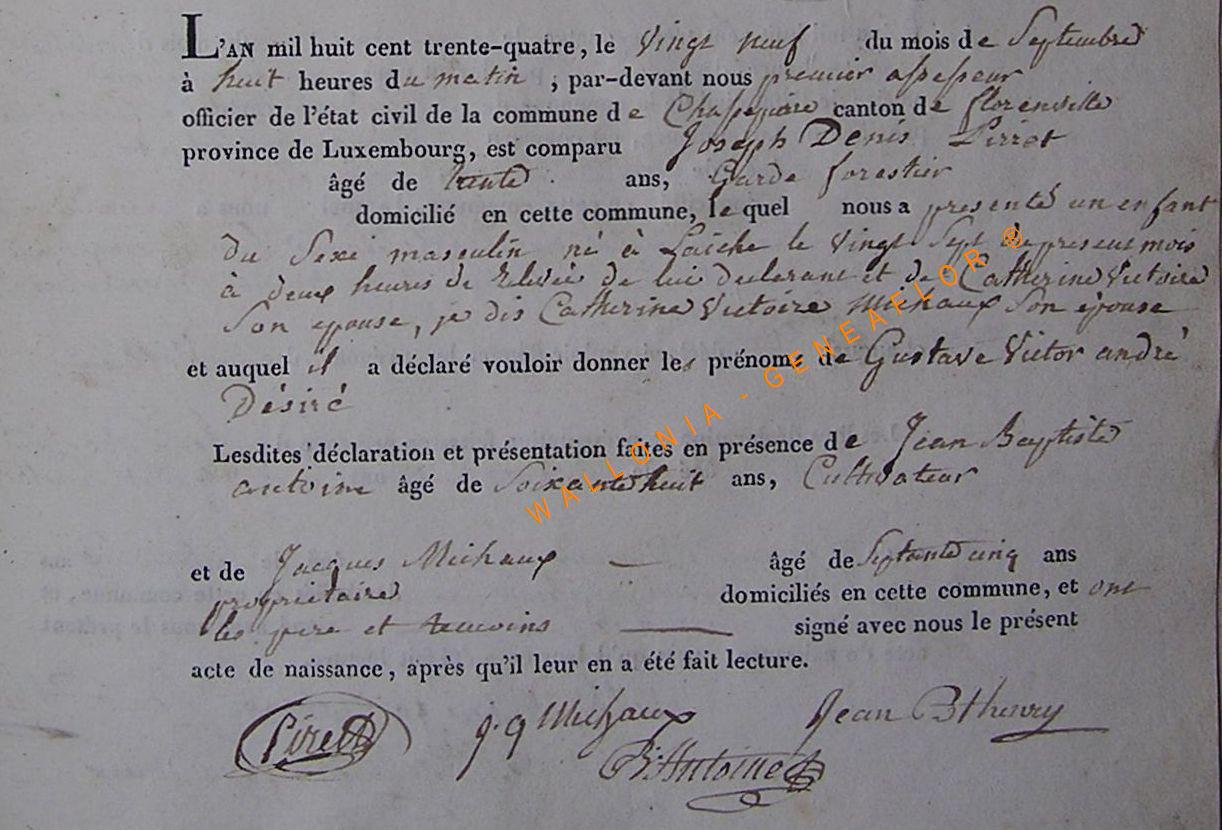 L'AN mil huit cent trente-quatre, le Vingt neuf du mois de Septembre
à huit heures du matin ; par-devant nous premier assesseur
officier de l'état civil de la commune de Chassepierre canton de florenville
province de Luxembourg, est comparu Joseph Denis Pirret
âgé de trente ans, Garde forestier
domicilié en cette commune, le quel nous a présenté un enfant
du Sexe masculin né à Laiche le Vingt Sept du present mois
à deux heures de relevée de lui declarant et de Catherine Victoire
Son epouse, je dis Catherine Victoire Michaux Son epouse
et auquel il a déclaré vouloir donner les prénoms de Gustave Victor andré
Désiré
Lesdites déclaration et présentation faites en présence de Jean Baptiste
antoine âgé de Soixante huit ans, Cultivateur
et de Jacques Michaux âgé de Septante cinq ans
propriétaire domiciliés en cette commune, et ont
les pere et temoins signé avec nous le présent
acte de naissance, après qu'il leur en a été fait lecture.
Piret j. q Michaux Jean Bthenry
B. Antoine
WALLONIA - GENEAFLOR ®